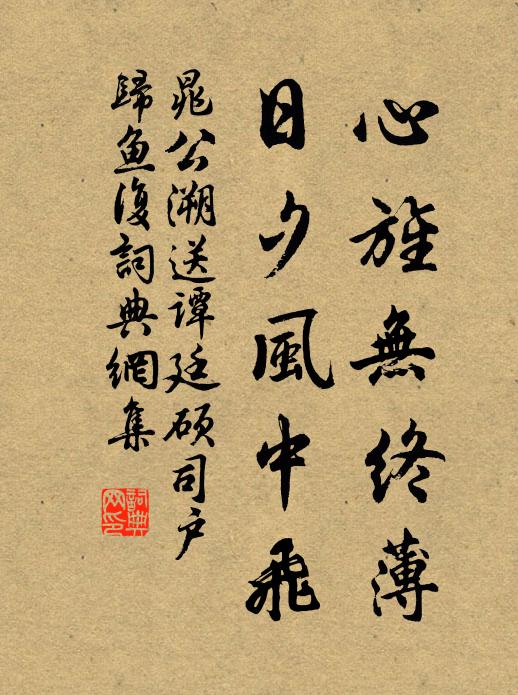 心旌無終薄
日夕風中飛
晁公溯送譚廷碩司户
歸魚復詞典網集
詞典
网印